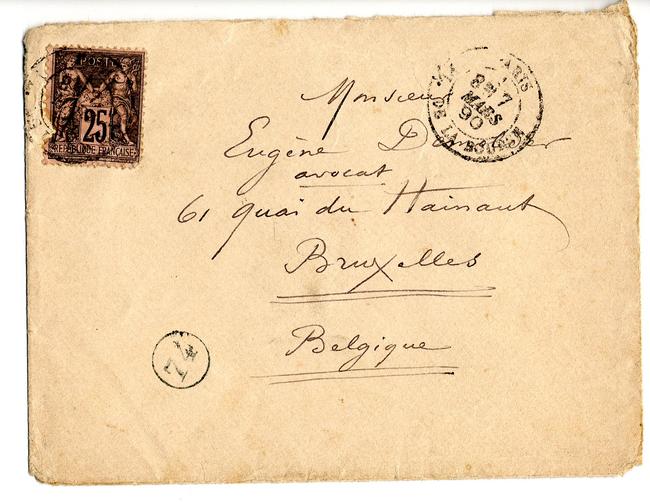 POSTES
25
REPUBLIQUE FRANÇAISE
PARIS
8E 7
MARS
90
PL. DE LA BOURSE
Monsieur
Eugène
avocat
61 quai du Hainaut
Bruxelles
Belgique
74